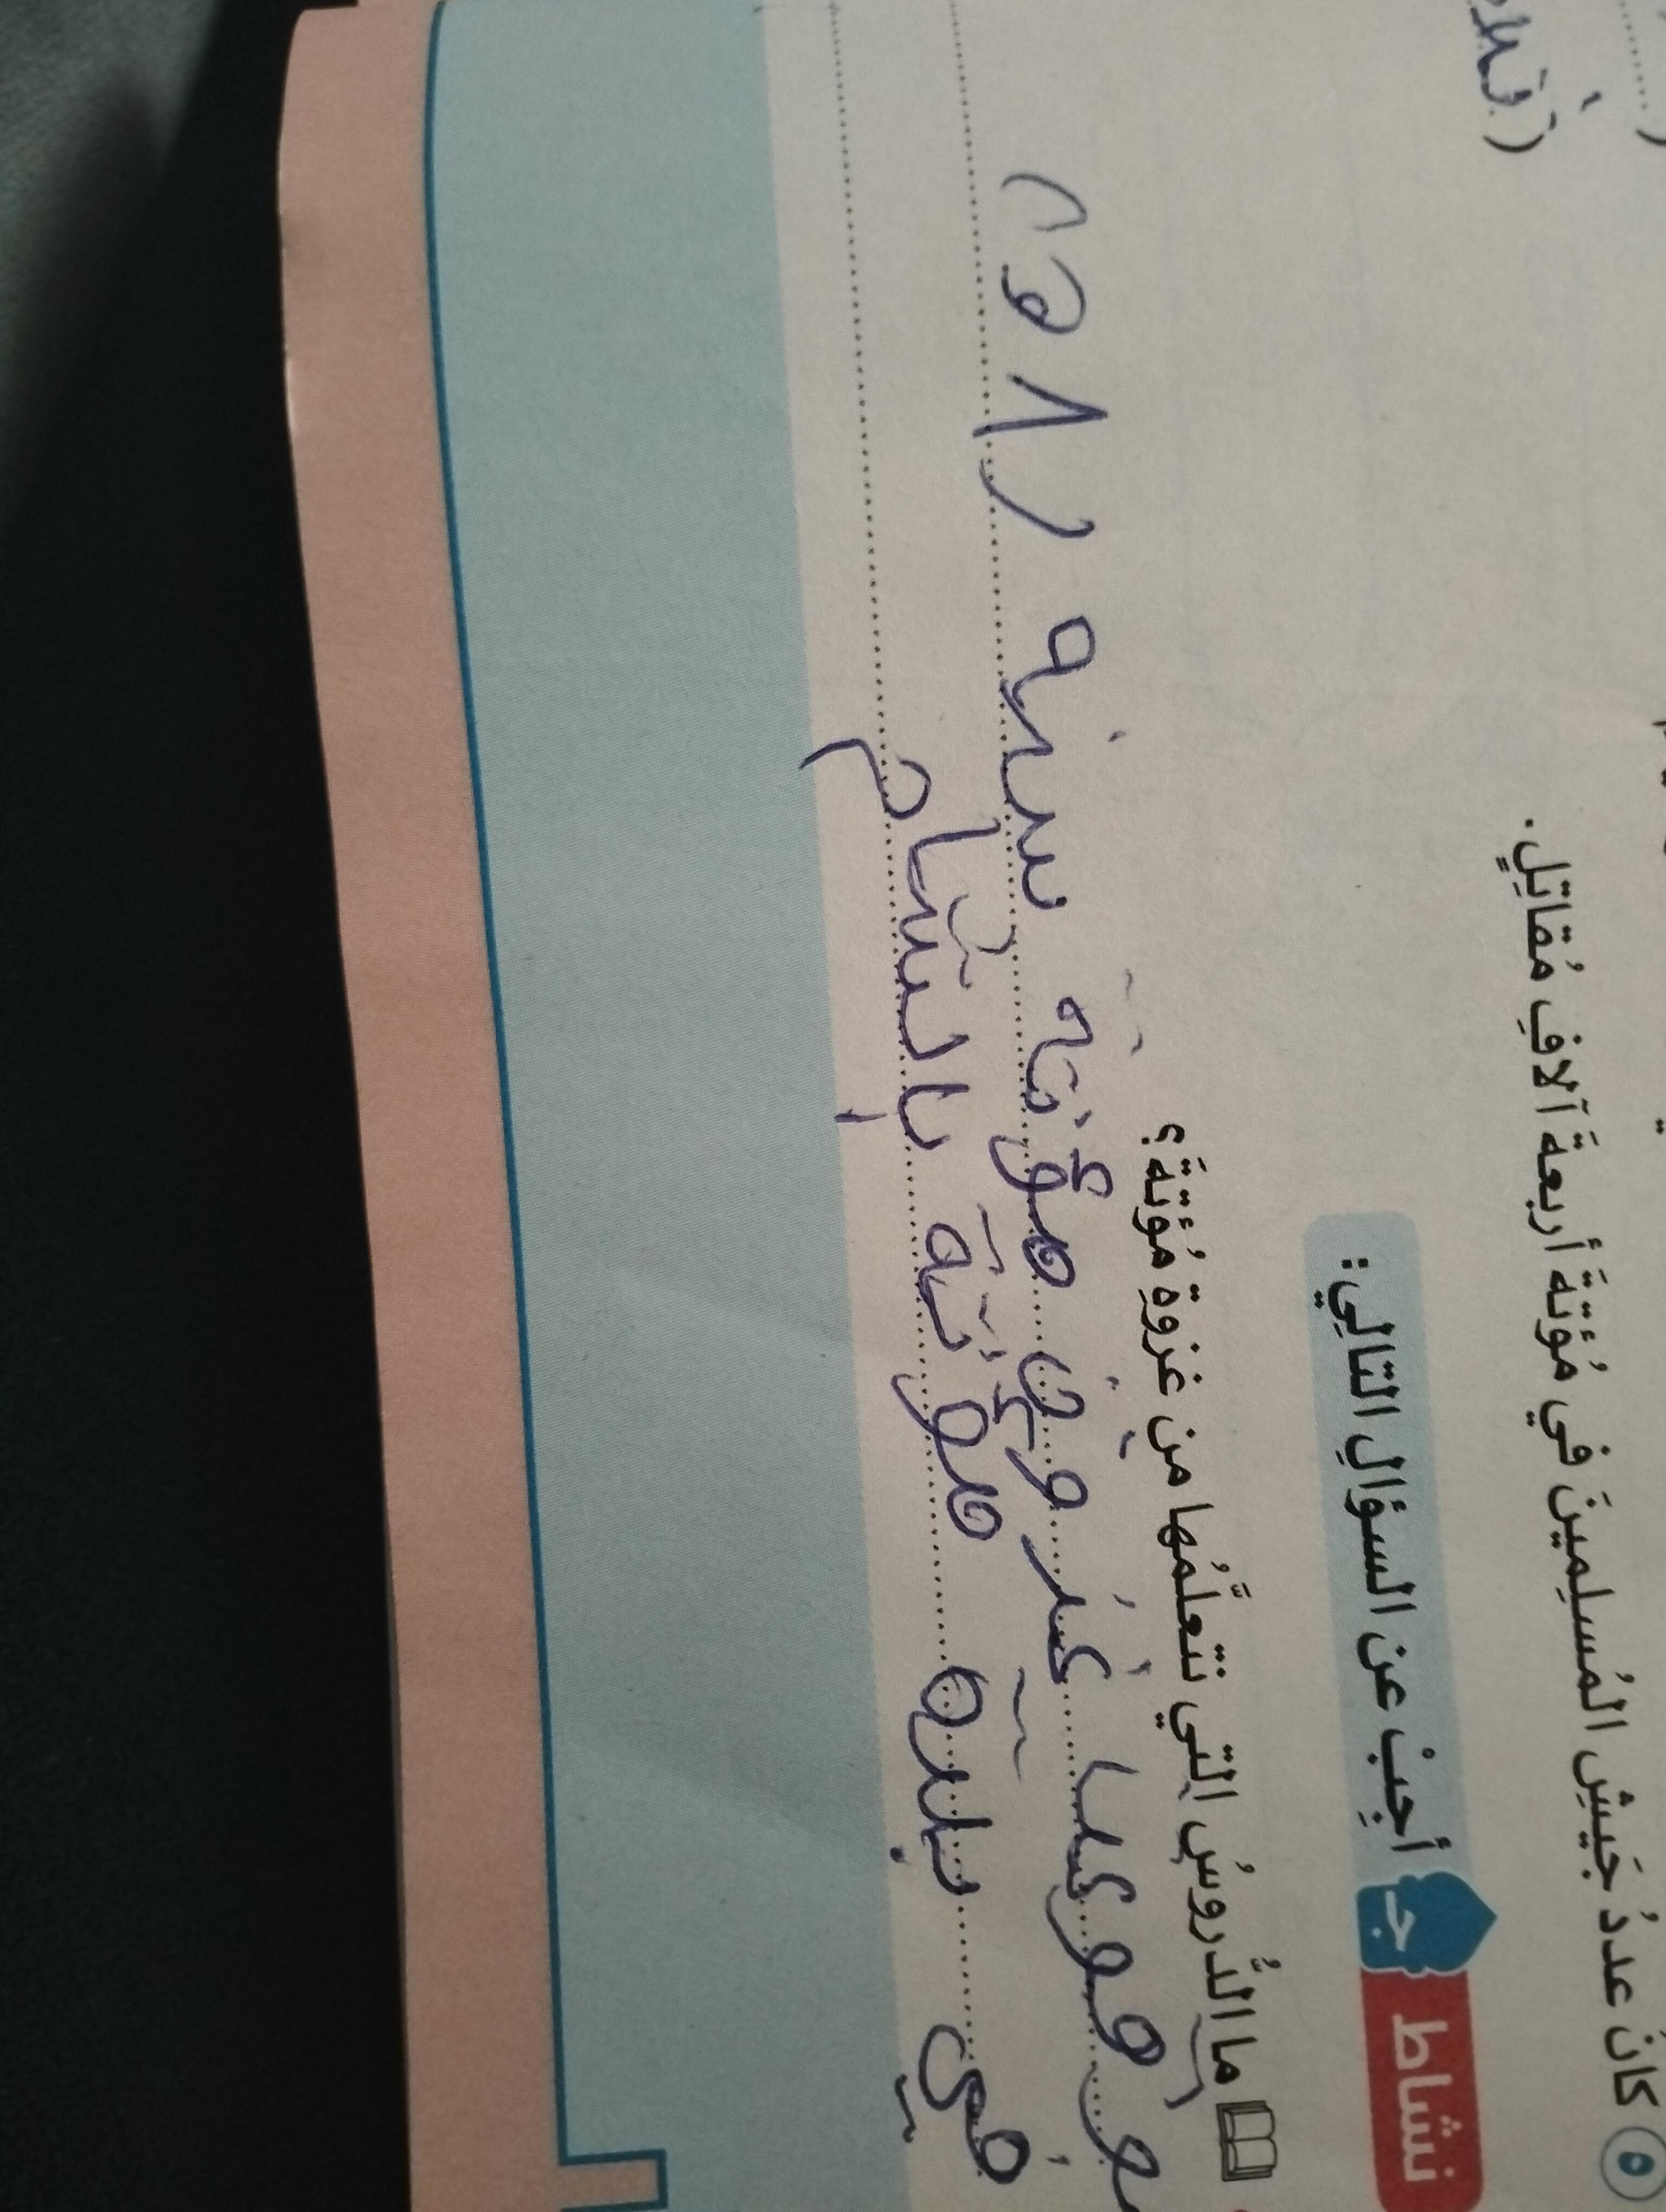 (ثلا
٥ كانَ عددُ جَيشِ المُسلِمينَ في مُؤتةَ أربعةَ آلافِ مُقاتِلٍ.
نشاط ج أجِبْ عن السؤالِ التالِي:
ما الدُّروسُ التي نتعلَّمُها من غزوةِ مُؤتةَ؟
مؤتة سنه (٨ هـ)
في بلدة مؤتة بالشام